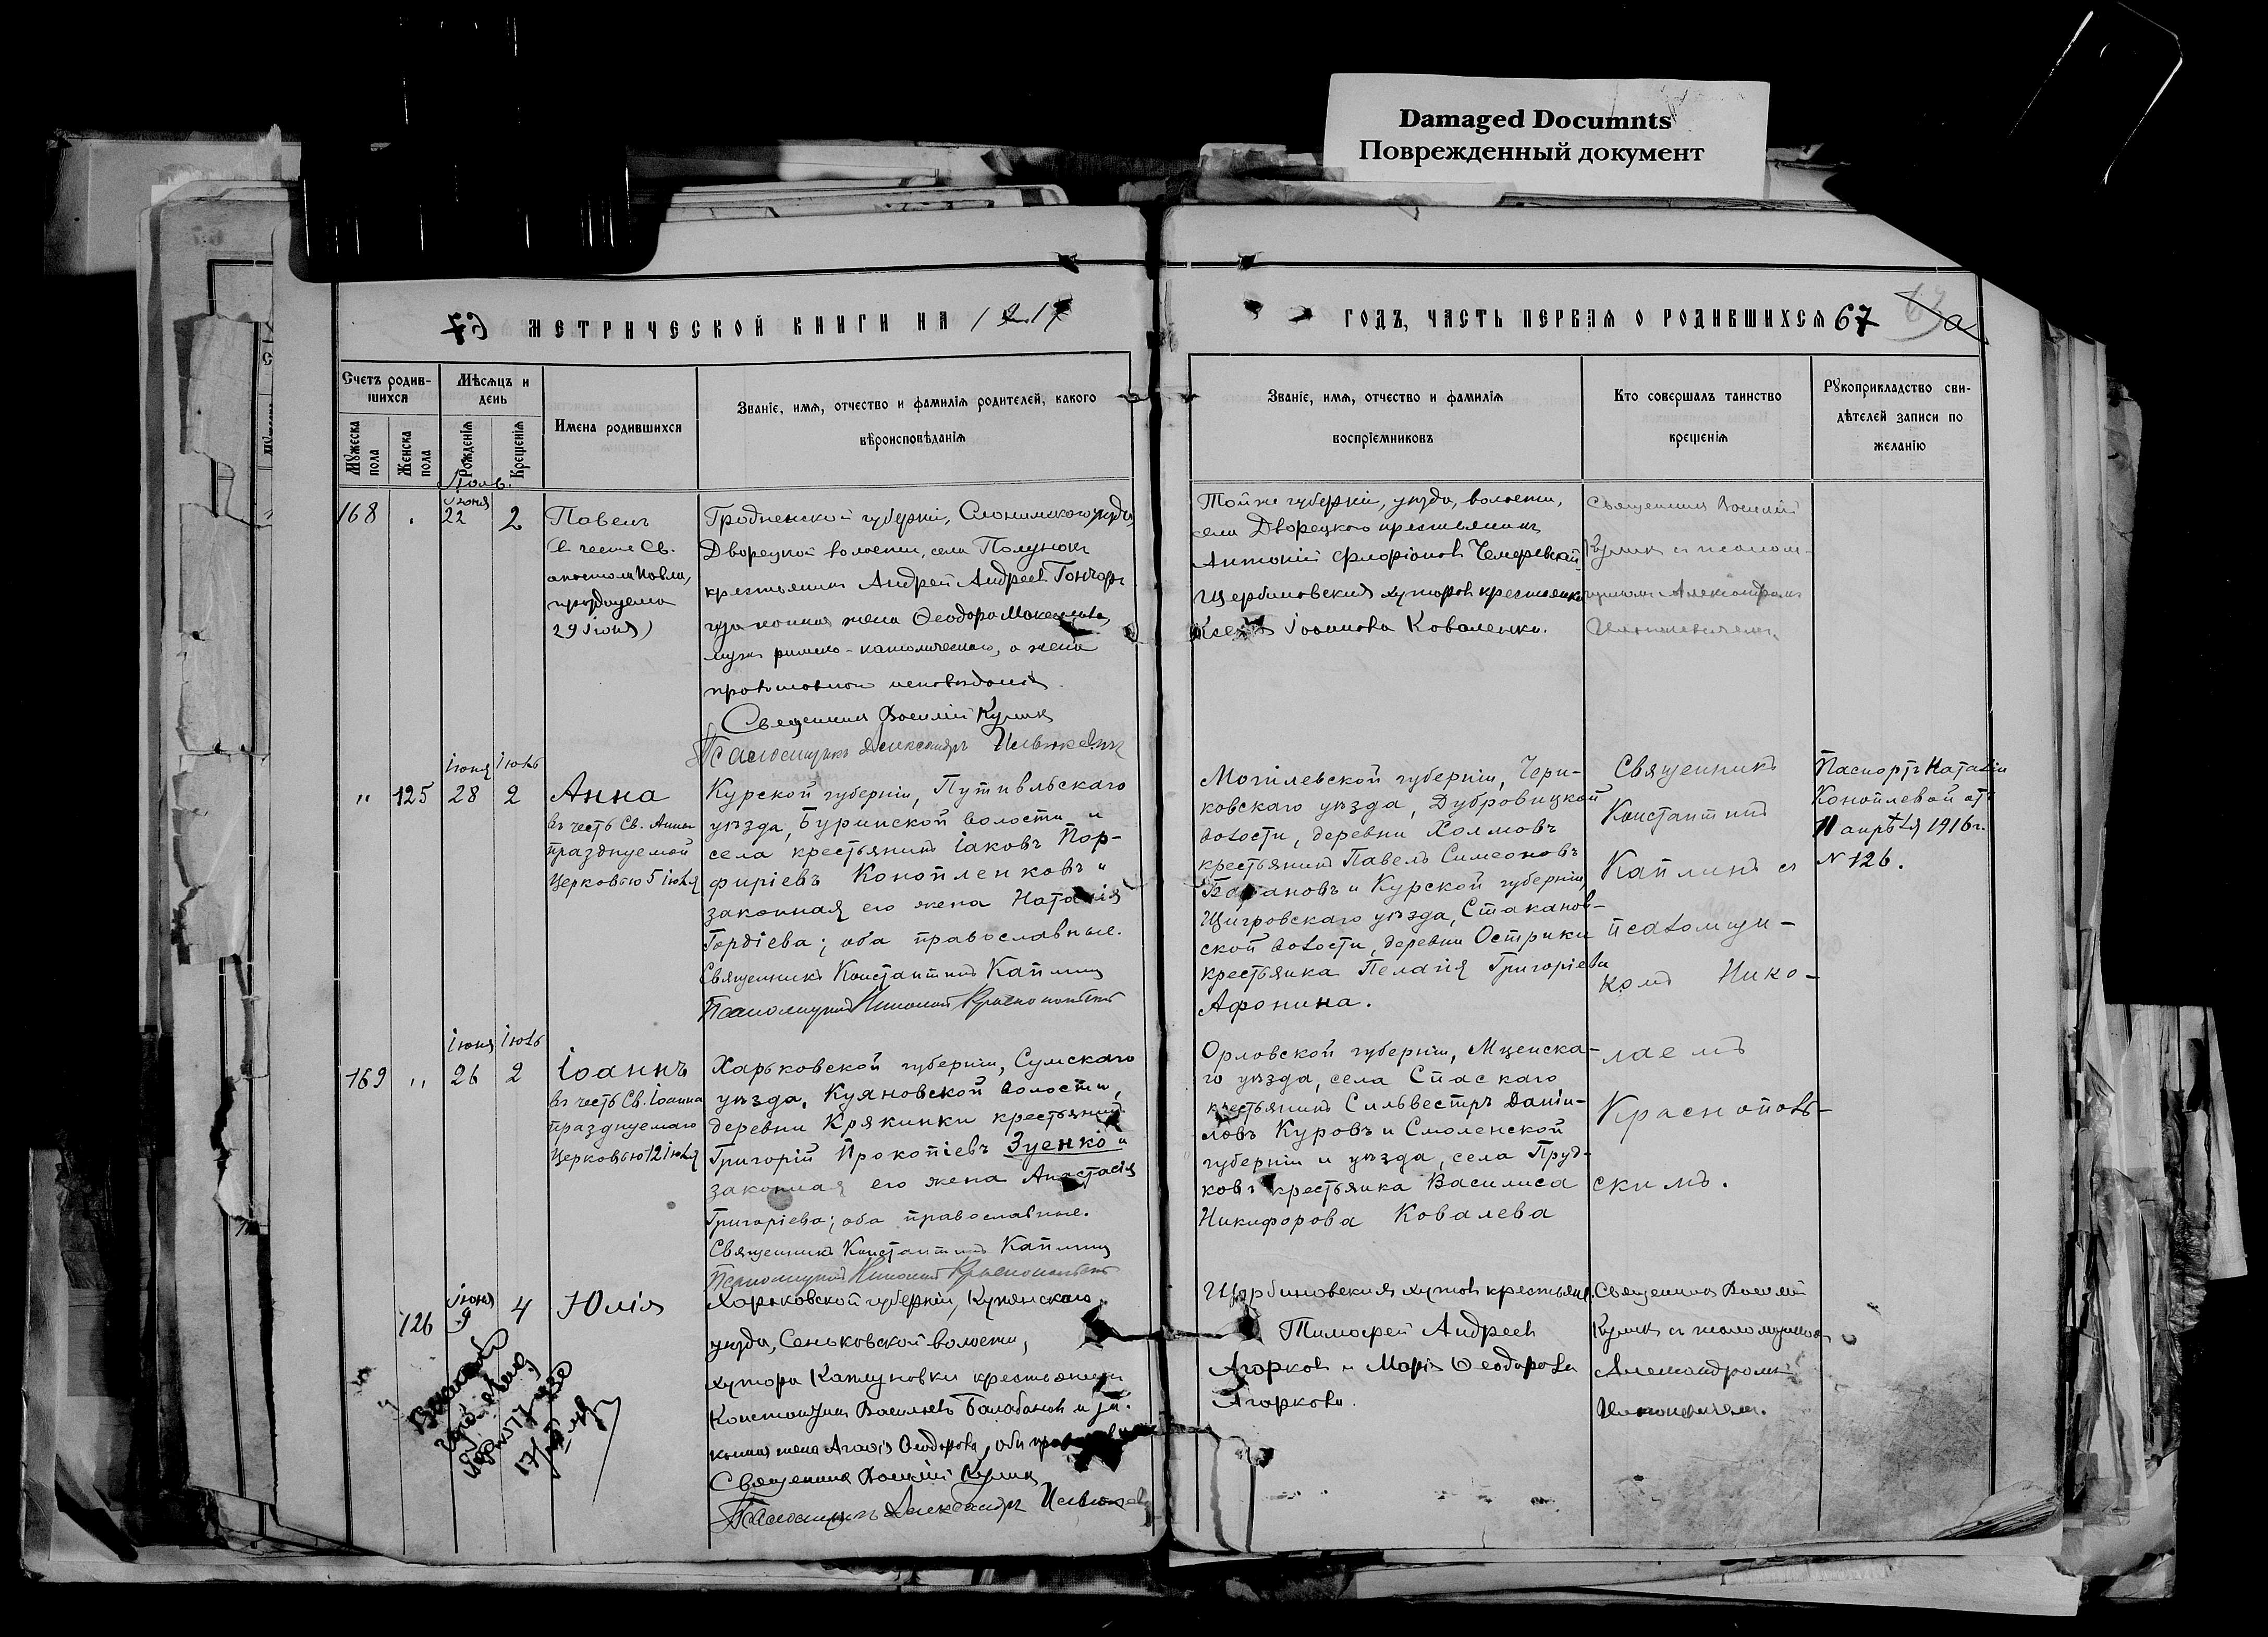 Damaged Documnts
Поврежденный документ
67 МЕТРИЧЕСКОЙ КНИГИ НА 1917
ГОДЪ, ЧАСТЬ ПЕРВАЯ О РОДИВШИХСЯ 67
Счетъ родив-
шихся
Мужеска пола
Женска пола
Мѣсяцъ и
день
Рожденія
Крещенія
Имена родившихся
Званіе, имя, отчество и фамилія родителей, какого
вѣроисповѣданія
Званіе, имя, отчество и фамилія
воспріемниковъ
Кто совершалъ таинство
крещенія
Рукоприкладство сви-
дѣтелей записи по
желанію
Іюль.
168
Іюня
22
2
Павелъ
въ честь Св.
апостола Павла,
празднуема
29 Іюня)
Гродненской губерніи, Слонимскаго уѣзда
Дворецкой волости, села
крестьянинъ Андрей Андреевъ Гончаръ
законная жена Ѳеодора
мужъ римско-католическаго, а жена
православнаго исповѣданія.
Священникъ Василій Куликъ
Псаломщикъ Александръ
Той же губерніи, уѣзда, волости,
села Дворецкого крестьянинъ
Антоній Флоріановъ
Щербиновскихъ хуторовъ крестьянка
Іоаннова Коваленко.
Священникъ Василій
Куликъ съ псалом-
щикомъ Александромъ
"
125
Іюня
28
Іюль
2
Анна
въ честь Св. Анны
празднуемой
Церковью 5 Іюля
Курской губерніи, Путивльскаго
уѣзда, Буринской волости и
села крестьянинъ Іаковъ Пор-
фиріевъ Коноплевъ и
законная его жена Наталія
Гордіева; оба православные.
Священникъ Константинъ Каплинъ
Псаломщикъ Николай Краснопольскій
Могилевской губерніи, Чери-
ковскаго уѣзда, Дубровицкой
волости, деревни Холмовъ
крестьянинъ Павелъ Симеоновъ
Барановъ и Курской губерніи,
Щигровскаго уѣзда, Стаканов-
ской волости, деревни Острики
крестьянка Пелагія Григоріева
Афонина.
Священникъ
Константинъ
Каплинъ съ
псаломщи-
комъ Нико-
лаемъ
Краснополь-
скимъ.
Паспортъ Наталіи
Коноплевой отъ
11 апрѣля 1916 г.
N 126.
169
"
Іюня
26
Іюль
2
Іоаннъ
въ честь Св. Іоанна
празднуемаго
Церковью 12 Іюля
Харьковской губерніи, Сумскаго
уѣзда, Куяновской волости,
деревни Крякинки крестьянинъ
Григорій Прокопіевъ Зуенко и
законная его жена Анастасія
Григоріева; оба православные.
Священникъ Константинъ Каплинъ
Псаломщикъ Николай Краснопольскій
Орловской губерніи, Мценска-
го уѣзда, села Спаскаго
крестьянинъ Сильвестръ Даніи-
ловъ Куровъ и Смоленской
губерніи и уѣзда, села Пруд-
ковъ крестьянка Василиса
Никифорова Ковалева
126
Іюня
9
4
Юлія
Харьковской губерніи, Купянскаго
уѣзда, Сеньковской волости,
хутора крестьянинъ
Константинъ Васильевъ Балабановъ и за-
конная жена Ѳеодорова, оба
Священникъ Василій Куликъ
Псаломщикъ Александръ
Щербиновскихъ хуторовъ крестьяне
Тимофей Андреевъ
Агарковъ и Марія Ѳеодорова
Агаркова.
Священникъ Василій
Куликъ съ псаломщикомъ
Александромъ